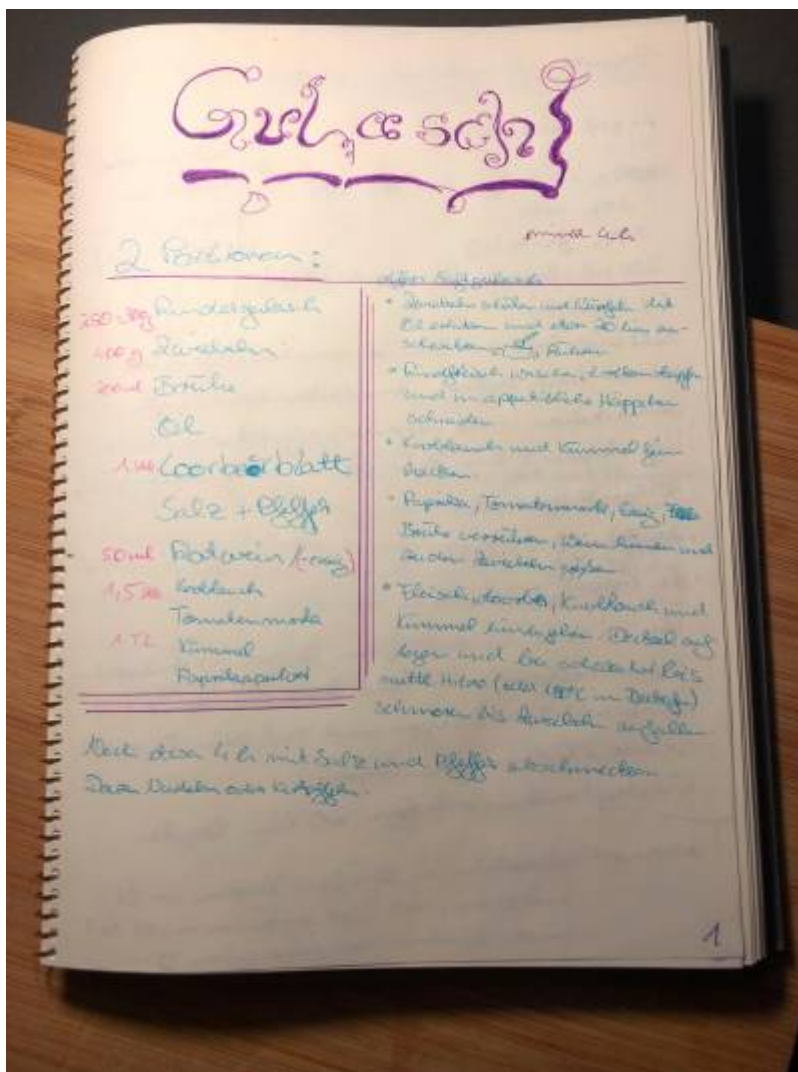 Gulasch
2 Portionen:
Rindergulasch
400 g Zwiebeln
200ml Brühe
Öl
Loorbeerblatt
Salz + Pfeffer
50ml Rotwein (-essig)
1,5 Knoblauch
Tomatenmark
1 TL Kümmel
Paprikapulver
• Zwiebeln schälen und würfeln. Mit
Öl erhitzen und etwa 20 min an-
• Rindfleisch waschen, trocken tupfen
und in appetitliche Häppchen
schneiden
• Knoblauch und Kümmel fein
hacken.
• Paprika, Tomatenmark, Essig,
Brühe verrühren, und
zu den Zwiebeln gießen
• Fleisch, Knoblauch und
Kümmel hinzugeben. Deckel auf
legen und bei schwacher bis
mittl Hitze (oder 180°C im Backofen)
schmoren bis Zwiebeln zerfallen
Nach etwa 4 h mit Salz und Pfeffer abschmecken
Dazu Nudeln oder Kartoffeln.
1